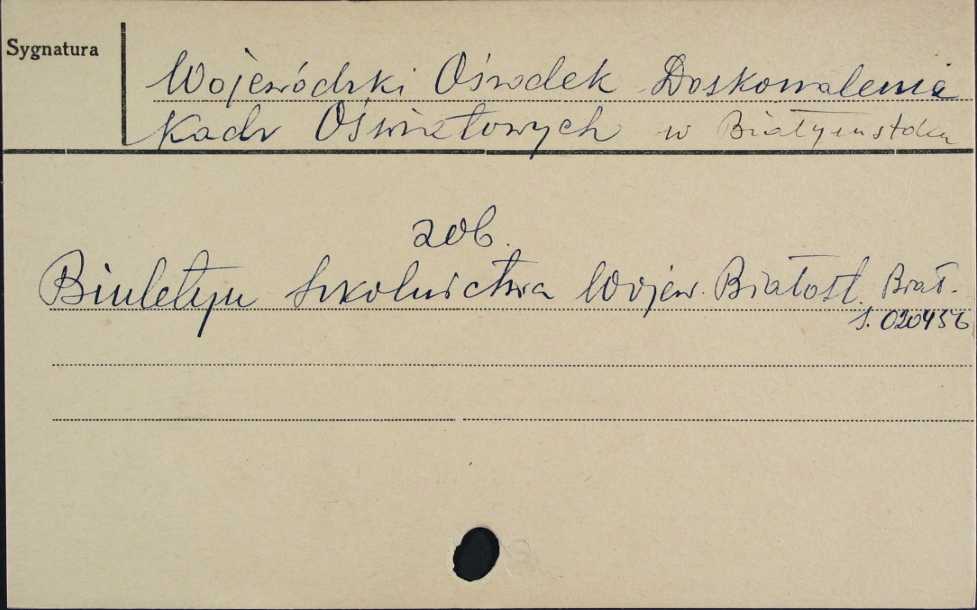 Sygnatura
Wojewódzki Ośrodek Doskonalenia
Kadr Oświatowych w Białymstoku
zob.
Biuletyn Szkolnictwa Wojew. Białost. Biał.
S. 020456